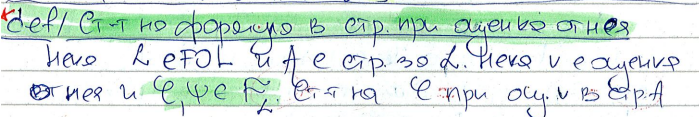 def/ Ст-т на формула в стр. при оценка от нея
Нека L е FOL и A е стр. за L. Нека v е оценка
от нея и φ, ψ ∈ F_L. Ст-т на φ при оц. v в стр. A